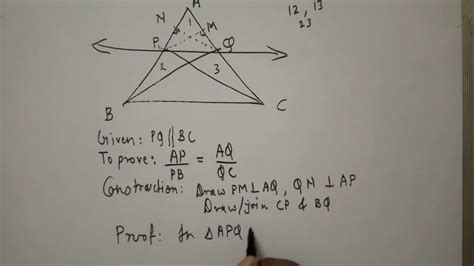 12, 13
23
A
N
1
M
P
Q
2
3
B
C
Given: PQ || BC
To prove: AP/PB = AQ/QC
Construction: Draw PM ⊥ AQ, QN ⊥ AP
Draw/join CP & BQ
Proof: In △APQ